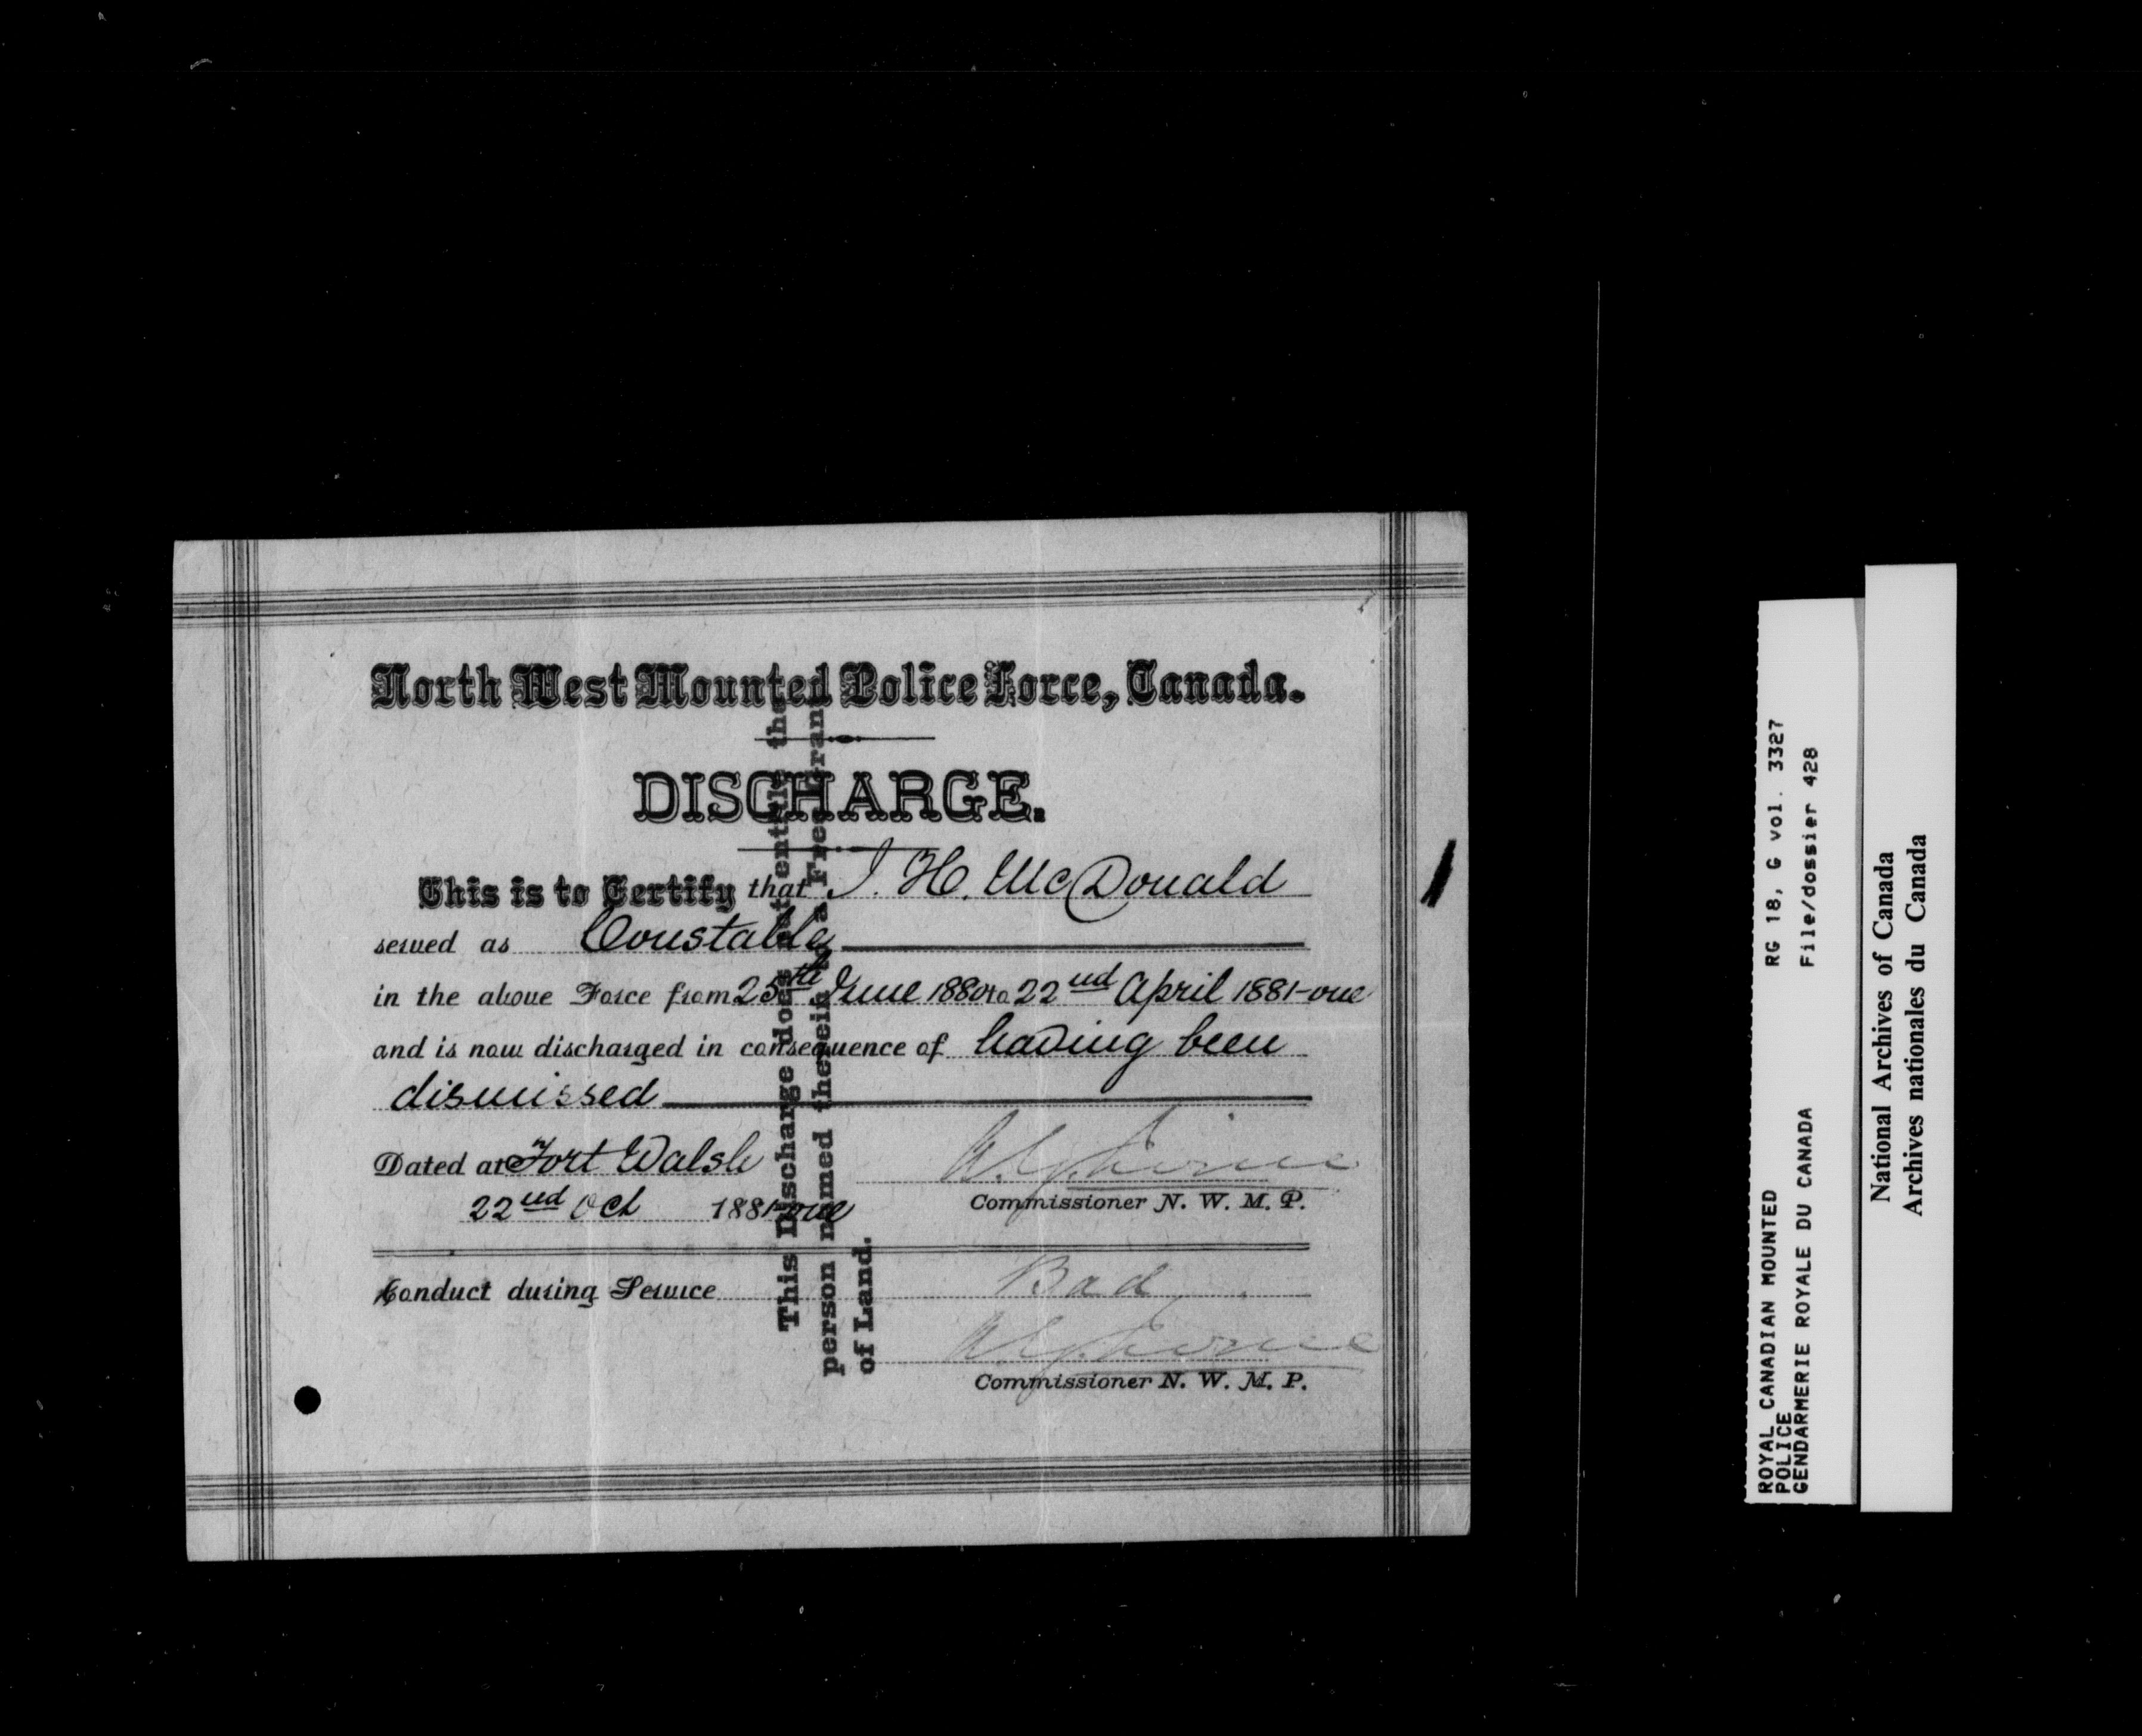 North West Mounted Police Force, Canada.
DISCHARGE.
This is to Certify that J. H. McDonald
served as Constable
in the above Force from 25th June 1880 to 22nd April 1881-one
and is now discharged in consequence of having been
dismissed
Dated at Fort Walsh
22nd Oct 1881-one
Commissioner N. W. M. P.
Conduct during Service Bad
Commissioner N. W. M. P.
This Discharge does not entitle the
person named therein to a Free Grant
of Land.
RG 18, G vol. 3327
File/dossier 428
ROYAL CANADIAN MOUNTED
POLICE
GENDARMERIE ROYALE DU CANADA
National Archives of Canada
Archives nationales du Canada